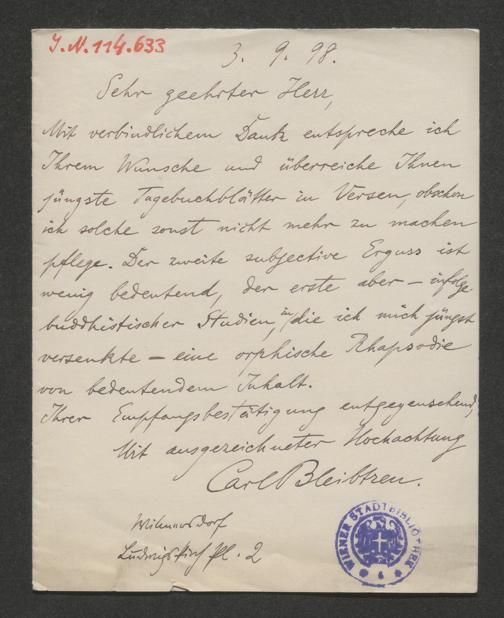 I.N.114.633
3. 9. 98.
Sehr geehrter Herr,
Mit verbindlichem Dank entspreche ich
Ihrem Wunsche und überreiche Ihnen
jüngste Tagebuchblätter in Versen, obschon
ich solche sonst nicht mehr zu machen
pflege. Der zweite subjective Erguss ist
wenig bedeutend, der erste aber – infolge
buddhistischer Studien, in die ich mich jüngst
versenkte – eine orphische Rhapsodie
von bedeutendem Inhalt.
Ihrer Empfangsbestätigung entgegensehend,
Mit ausgezeichneter Hochachtung
Carl Bleibtreu.
Wilmersdorf
Pl. 2
WIENER STADTBIBLIOTHEK